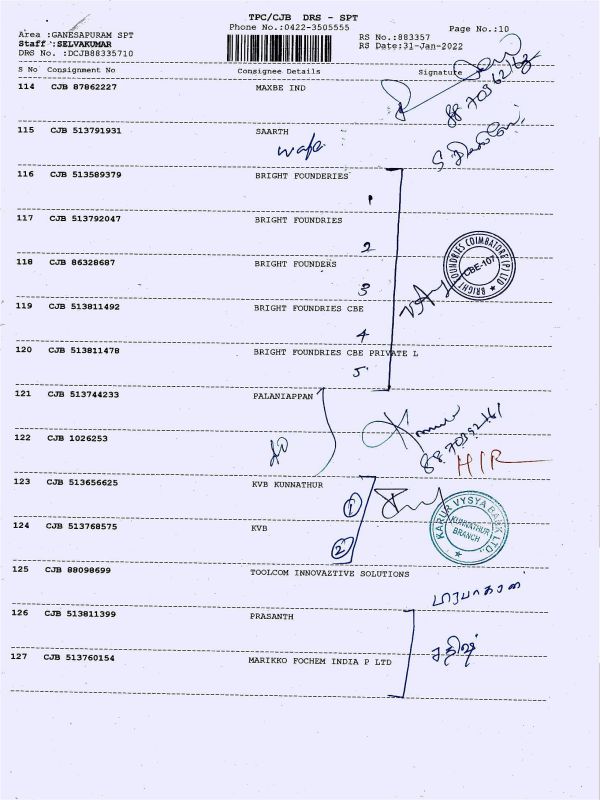 TPC/CJB DRS - SPT
Phone No.:0422-3505555
Page No.:10
Area :GANESAPURAM SPT
Staff :SELVAKUMAR
DRS No. :DCJB88335710
RS No.:883357
RS Date:31-Jan-2022
S No Consignment No Consignee Details Signature
114 CJB 87862227 MAXBE IND
115 CJB 513791931 SAARTH
116 CJB 513589379 BRIGHT FOUNDERIES
1
117 CJB 513792047 BRIGHT FOUNDRIES
2
118 CJB 86328687 BRIGHT FOUNDERS
3
BRIGHT FOUNDRIES COIMBATORE (P) LTD
CBE-107
119 CJB 513811492 BRIGHT FOUNDRIES CBE
4
120 CJB 513811478 BRIGHT FOUNDRIES CBE PRIVATE L
5
121 CJB 513744233 PALANIAPPAN
122 CJB 1026253
HIR
123 CJB 513656625 KVB KUNNATHUR
1
KARUR VYSYA BANK LTD.,
KUNNATHUR
BRANCH
124 CJB 513768575 KVB
2
125 CJB 88098699 TOOLCOM INNOVAZTIVE SOLUTIONS
126 CJB 513811399 PRASANTH
127 CJB 513760154 MARIKKO FOCHEM INDIA P LTD